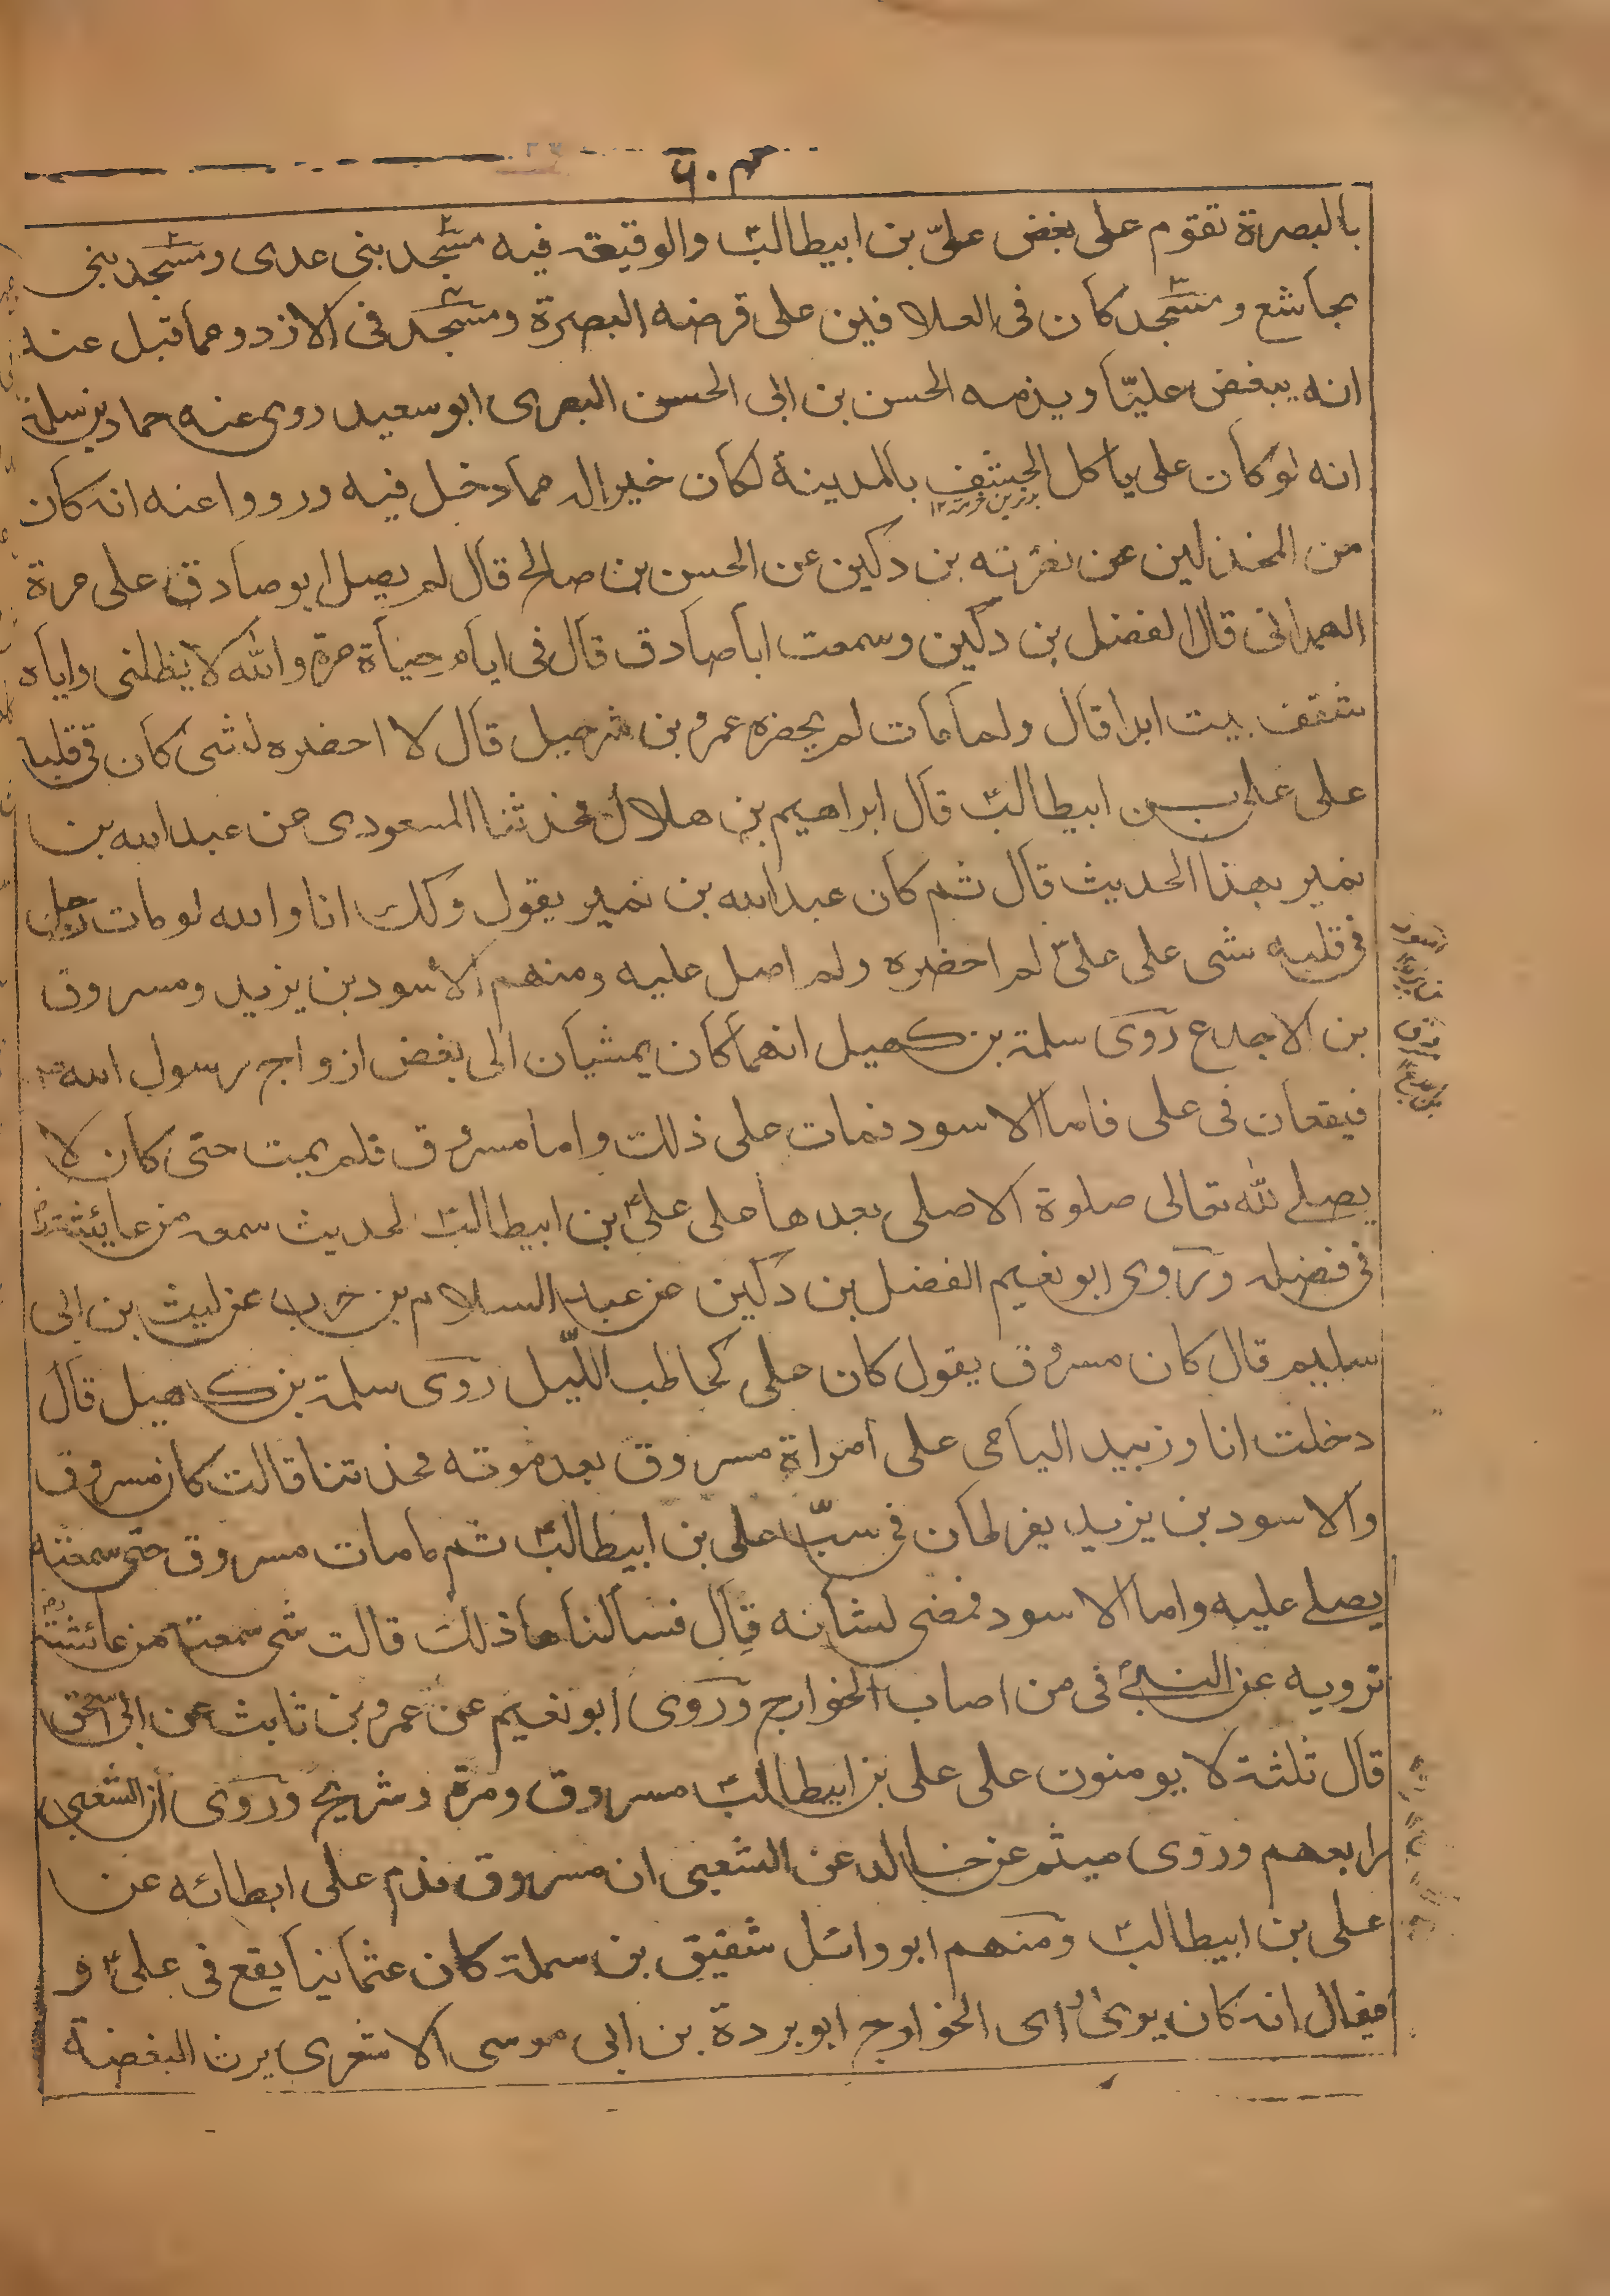 ۶۰۳
بالبصرة تقوم على بغض علىّ بن ابيطالبؑ والوقيعة فيه مسجد بنى عدى ومسجد بنى
مجاشع ومسجد كان فى العلافين على فرضه البصرة ومسجد فى الازد ومما قيل عنه
انه يبغض عليّا ويذمه الحسن بن ابى الحسن البصرى ابو سعيد روى عنه حماد بن سلمة
انه لو كان على ياكل الحشف بالمدينة لكان خيرا له مما دخل فيه ورووا عنه انه كان
من المخذلين عن نصرته بن دكين عن الحسن بن صالح قال لم يصل ابو صادق على مرة
الهمدانى قال الفضل بن دكين وسمعت ابا صادق قال فى ايام حياة مرة والله لا يظلنى واياه
سقف بيت ابدا قال ولما مات لم يحضره عمرو بن شرحبيل قال لا احضره لشى كان فى قلبه
على على بن ابيطالبؑ قال ابراهيم بن هلال فحدثنا المسعودى عن عبدالله بن
نمير بهذا الحديث قال ثم كان عبدالله بن نمير يقول وكك انا والله لو مات رجل
فى قلبه شى على علىؑ لم احضره ولم اصل عليه ومنهم الاسود بن يزيد ومسروق
بن الاجدع روى سلمة بن كهيل انهما كان يمشيان الى بغض ازواج رسول اللهؐ
فيقعان فى على فاما الاسود فمات على ذلك واما مسروق فلم يمت حتى كان لا
يصلے لله تعالى صلوة الا صلى بعدها على علىؑ بن ابيطالبؑ لحديث سمعه من عايشةؓ
فى فضله وروى ابو نعيم الفضل بن دكين عن عبد السلام بن حرب عن ليث بن ابى
سليم قال كان مسروق يقول كان على كحاطب اللّيل روى سلمة بن كهيل قال
دخلت انا وزبيد اليامى على امراة مسروق بعد موته فحدثتنا قالت كان مسروق
والاسود بن يزيد يفرطان فى سبّ على بن ابيطالبؑ ثم مامات مسروق حتى سمعته
يصلے عليه واما الاسود فمضى لشانه قال فسالنا ها ذلك قالت شى سمعته من عائشةؓ
ترويه عن النبىؐ فى من اصاب الخوارج وروى ابو نعيم عن عمرو بن ثابت عن ابى اسحق
قال ثلثة لا يومنون على على بن ابيطالبؑ مسروق ومرة وشريح وروى ان الشعبى
رابعهم وروى ميثم عن خالد عن الشعبى ان مسروق ندم على ابطائه عن
على بن ابيطالبؑ ومنهم ابو وائل شقيق بن سملة كان عثمانيا يقع فى علىؑ و
فيقال انه كان يرى راى الخوارج ابو بردة بن ابى موسى الاشعرى يرث البغضة